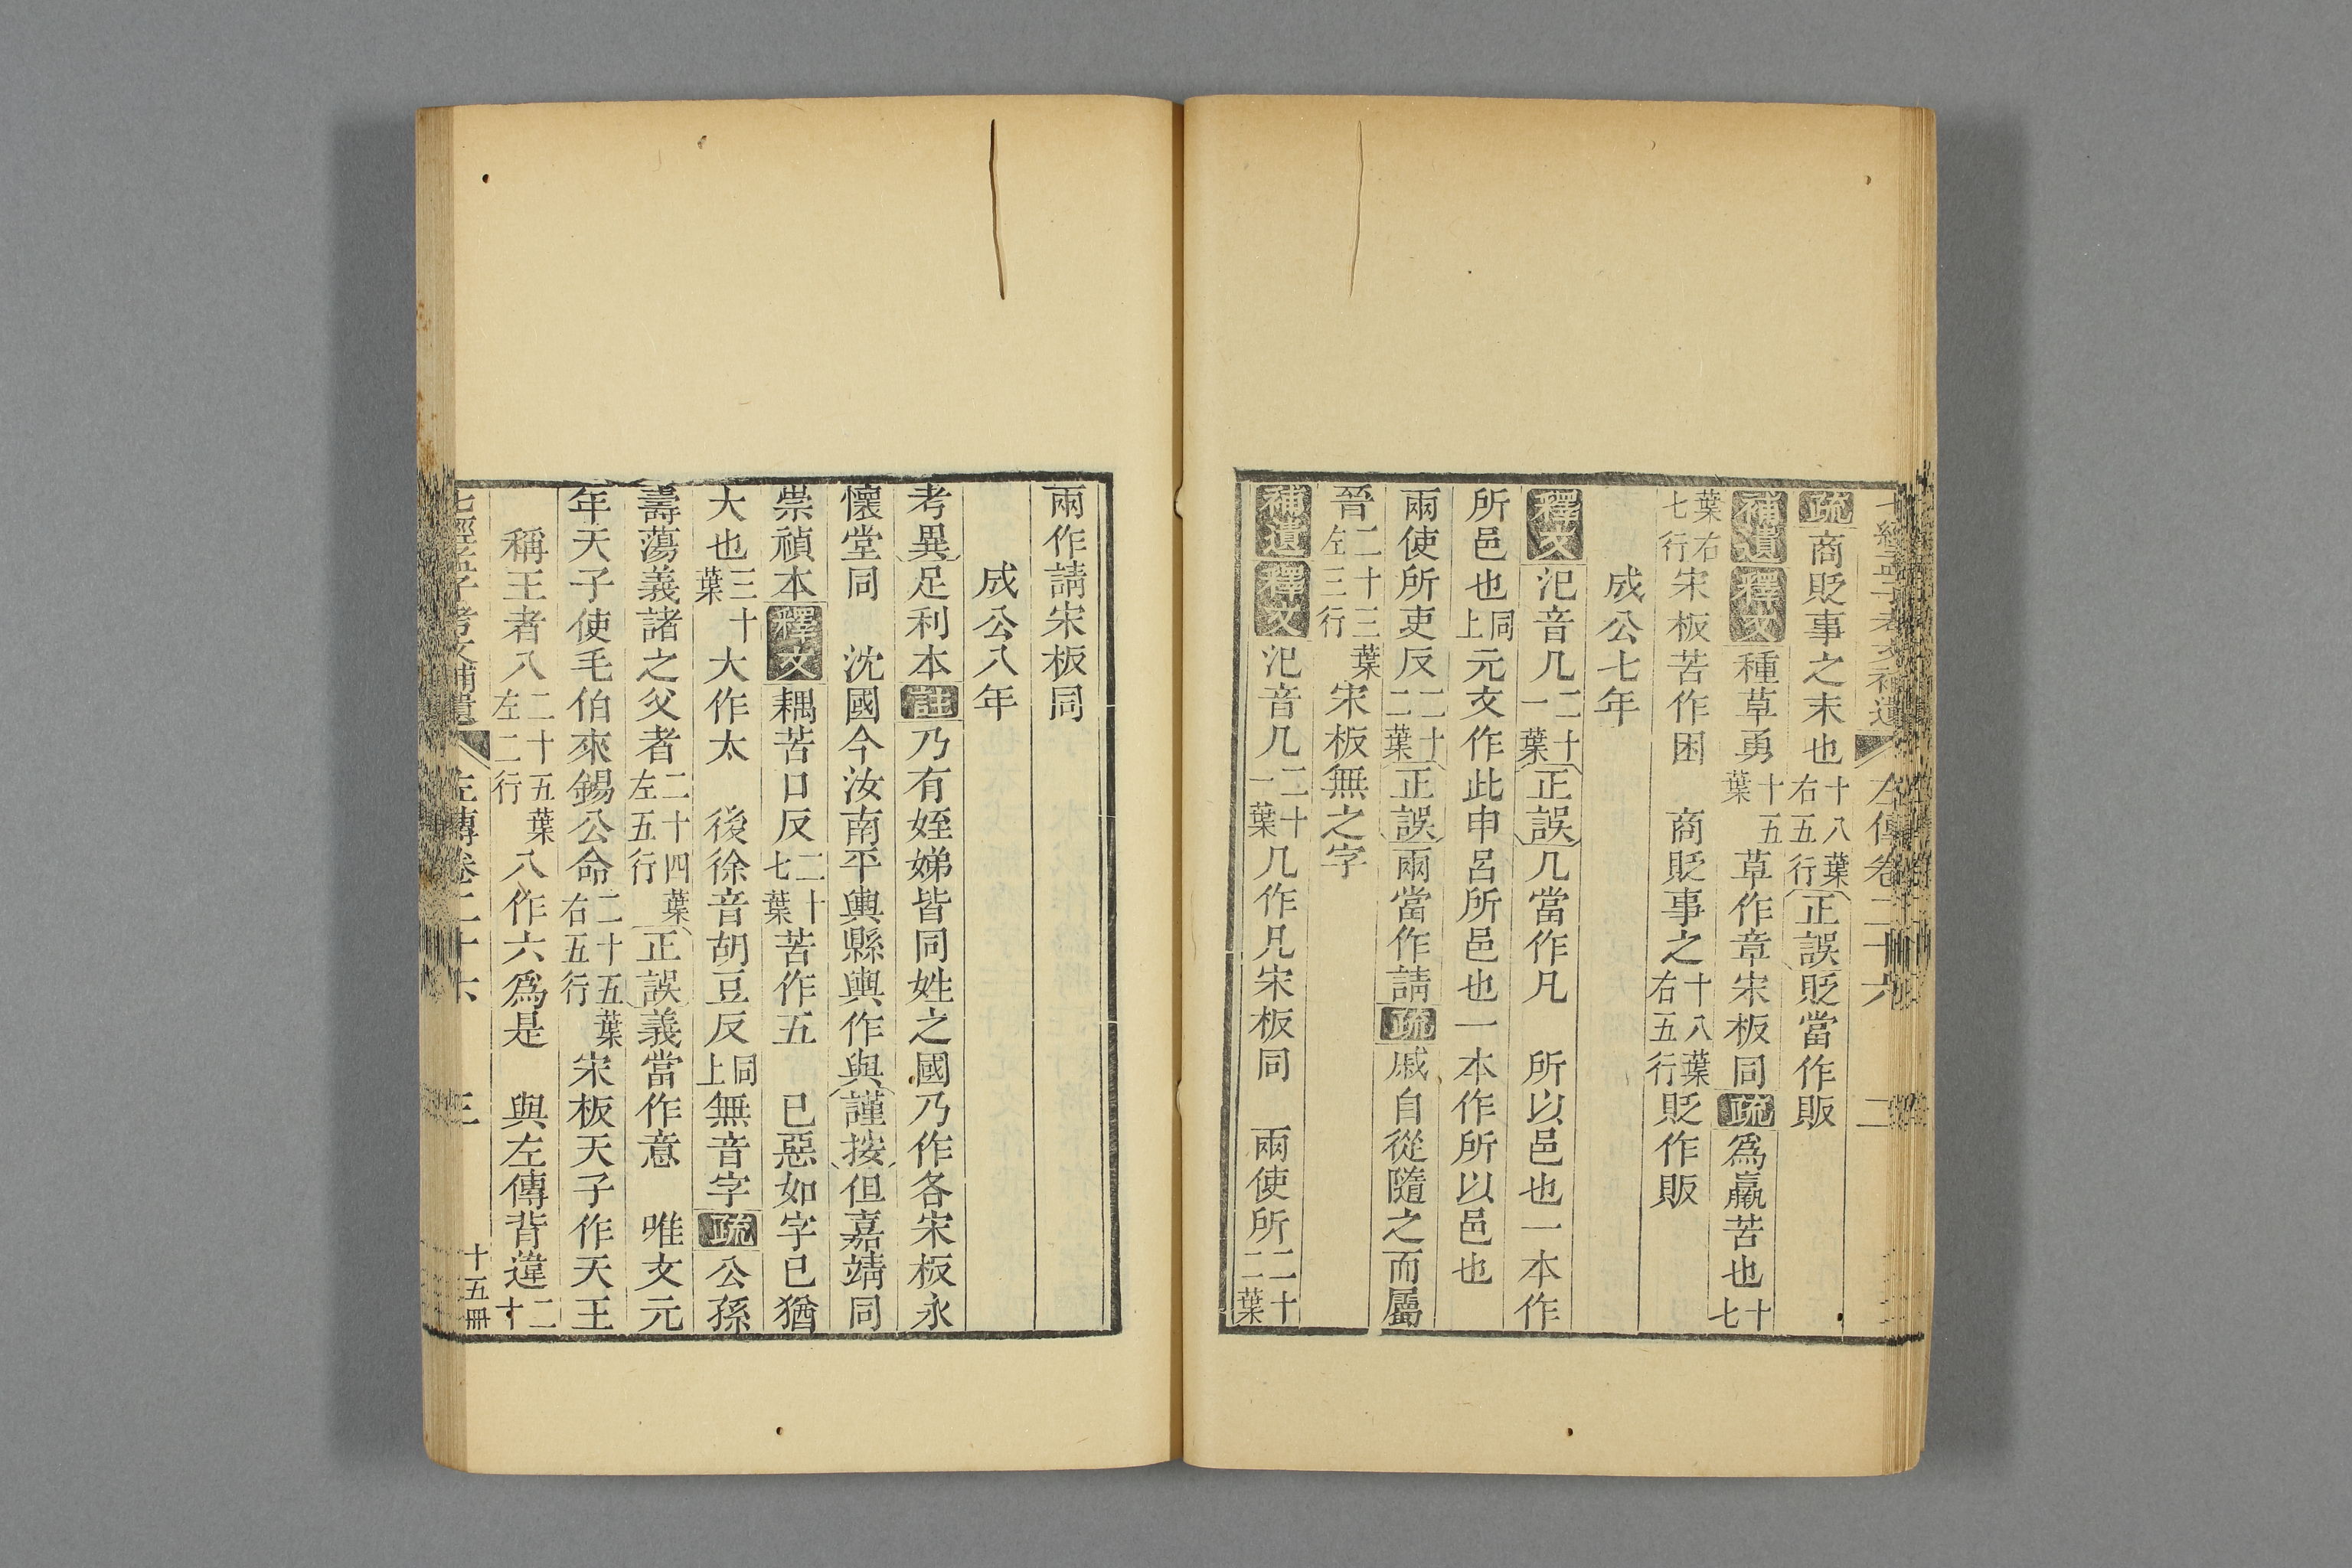 七經孟子考文補遺 左傳卷二十六 二
疏商貶事之末也十八葉右五行正誤貶當作販
補遺釋文種草勇十五葉草作章宋板同疏爲羸苦也十七
葉右七行宋板苦作困 商貶事之十八葉右五行貶作販
成公七年
釋文汜音几二十一葉正誤几當作凡 所以邑也一本作
所邑也同上元文作此申呂所邑也一本作所以邑也
兩使所吏反二十二葉正誤兩當作請疏戚自從隨之而屬
晉二十三葉左三行宋板無之字
補遺釋文汜音几二十一葉几作凡宋板同 兩使所二十二葉
兩作請宋板同
成公八年
考異足利本註乃有姪娣皆同姓之國乃作各宋板永
懷堂同 沈國今汝南平輿縣輿作與謹按但嘉靖同
崇禎本釋文耦苦口反二十七葉苦作五 已惡如字已猶
大也三十葉大作太 後徐音胡豆反同上無音字疏公孫
壽蕩義諸之父者二十四葉左五行正誤義當作意 唯文元
年天子使毛伯來錫公命二十五葉右五行宋板天子作天王
稱王者八二十五葉左二行八作六爲是 與左傳背違二十
七經孟子考文補遺 左傳卷二十六 三 十五冊